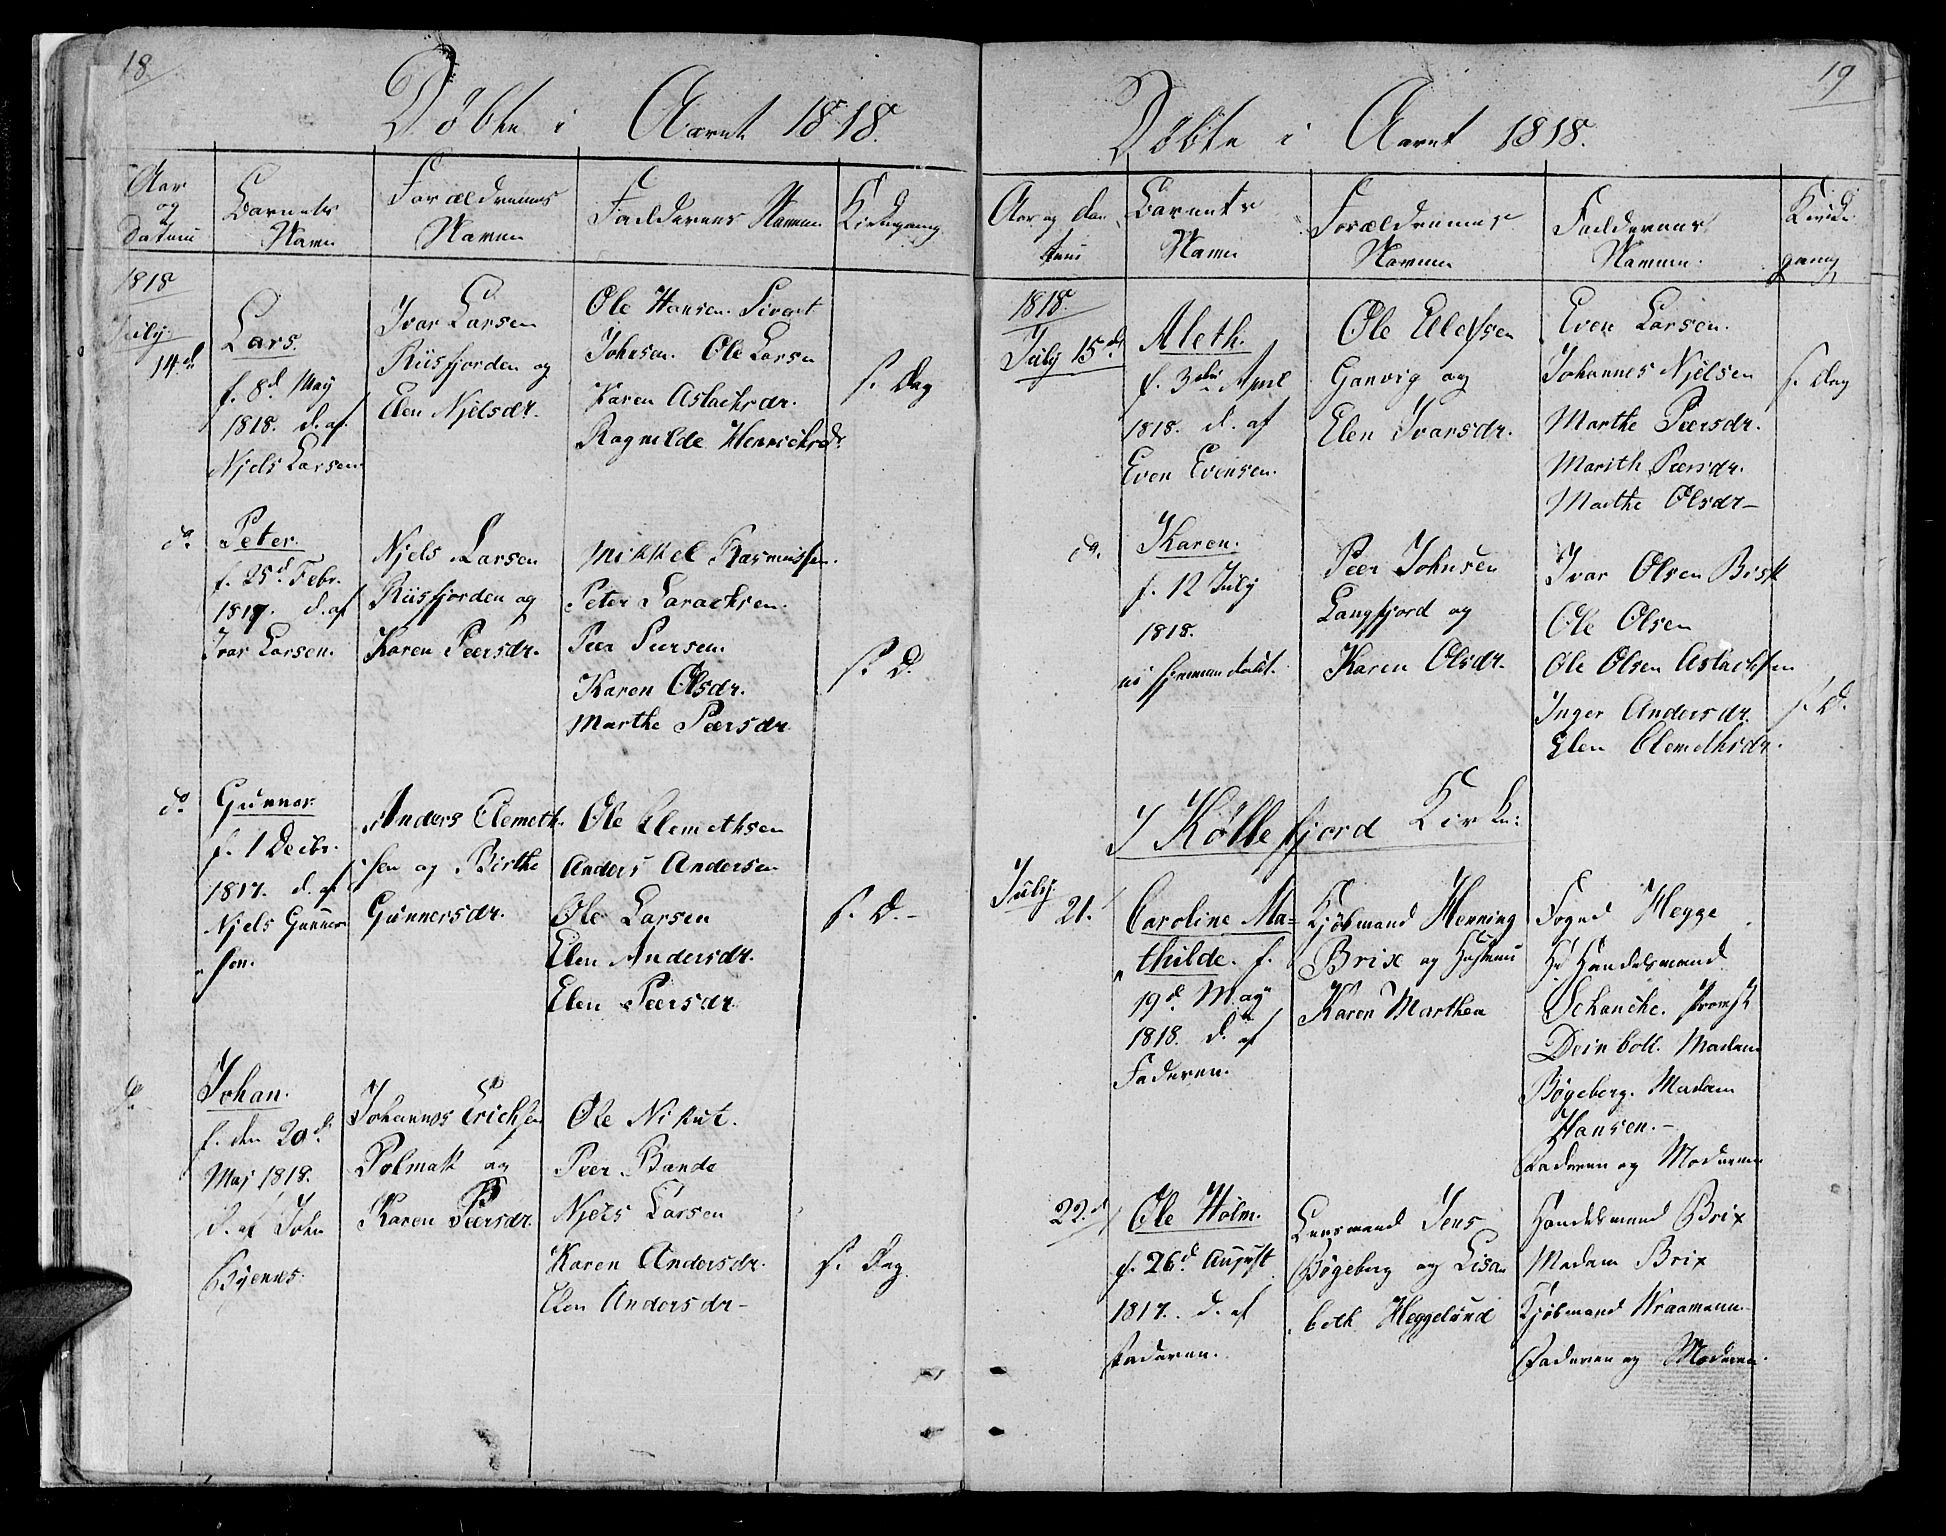 18.
Døbte i Aaret 1818.
Aar og Datum
Barnets Navn
Forældrenes Navne
Fadderens Navne
Kirkegang
1818
July 14.d
Lars.
f. 8.d May
1818. d. af
Njels Larsen
Ivar Larsen
Riisfjorden og
Elen Njelsdr.
Ole Hansen. Sivart
Johnsen. Ole Larsen
Karen Aslachsdr.
Ragnilde Henrichsdr
s. Dag
do.
Peter.
f. 25.d Febr.
1817. d. af
Ivar Larsen.
Njels Larsen
Riisfjorden og
Karen Peersdr.
Mikkel Rasmussen.
Peter Sarachsen.
Peer Peersen.
Karen Olsdr.
Marthe Peersdr.
s. D.
do.
Gunner.
f. 1 Decbr.
1817. d. af
Njels Gunner
sen.
Anders Clemeth
sen og Birthe
Gunnersdr.
Ole Clemethsen
Anders Andersen
Ole Larsen
Elen Andersdr.
Elen Peersdr
s. D.-
do.
Johan.
f. den 20.d
Maj 1818.
d. af John
Johannes Erichsen
Polmak og
Karen Peersdr.
Ole Nikut.
Peer Banda
Njels Larsen
Karen Andersdr.
Elen Andersdr-
s. Dag.
19
Døbte i Aaret 1818.
Aar og Da
tum
Barnets
Navne
Forældrenes
Navne
Fadderens
Navne.
Kirke
gang
1818.
July 15.d
Aleth.
f. 3die April
1818. d. af
Even Evensen.
Ole Ellefsen
Ganvig og
Elen Ivarsdr.
Even Larsen.
Johannes Njelsen
Marthe Peersdr.
Marith Peersdr.
Marthe Olsdr-
s. Dag
do.
Karen.
f. 12 July
1818.
ei hjemmedøbt.
Peer Johnsen
Langfjord og
Karen Olsdr.
Ivar Olsen Bisk
Ole Olsen
Ole Olsen Aslachsen
Inger Andersdr.
Elen Clemethsdr.
s. D.
I Kjøllefjord Kirke:
July 21.
Caroline Ma=
thilde. f.
19.d May
1818. d. af
Faderen.
Kjøbmand Henning
Brix og Hustrue
Karen Marthea
Foged Hegge
Hr Handelsmand
Schanche. Provst
Deinboll. Madam
Bøgeberg. Madam
Hansen.-
Faderen og Moderen
22.d
Ole Holm.
f. 26.d August
1817. d. af
Faderen.
Lensmand Jens
Bøgeberg og Lisa
beth Heggelund
Handelsmand Brix
Madam Brix
Kjøbmand Kraamann-
Faderen og Moderen.